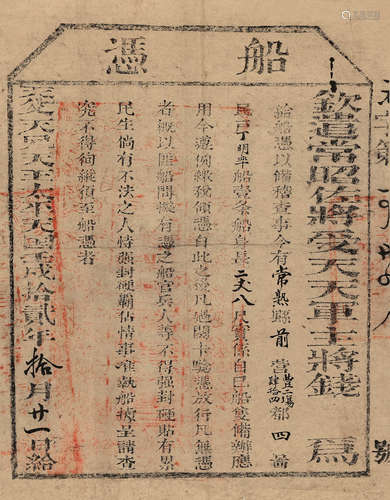 船憑
號
欽遵常昭佐將受天天軍主將錢 爲
給船憑以備稽查事今有常熟縣前營都四啚
民丁明率船壹条船身長二丈八尺實係自己船隻備辦應
用今遵例繳稅憑自此之凡過關卡驗憑放行凡無憑
者概以匪船問擬有憑之船官兵人等不得强封硬貼有累
民生倘有不法之人恃强封硬霸佔情事准執船憑呈請查
究不得徇縱須至船憑者
天父天兄天王太平天國壬戌拾貳年拾月廿一日給